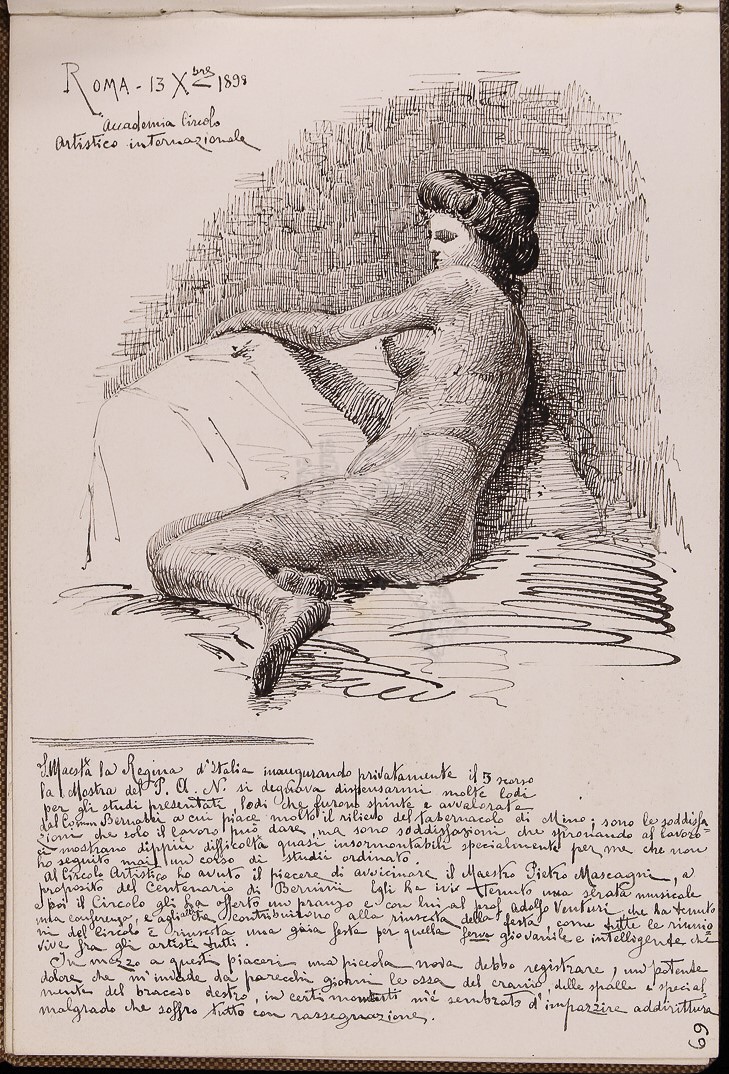 ROMA - 13 Xbre 1898
Accademia Circolo
Artistico internazionale
S. Maestà la Regina d'Italia inaugurando privatamente il 5 scorso
la Mostra del P. A. N. si degnava dispensarmi molte lodi
per gli studi presentati, lodi che furono spinte e avvalorate
dal Comm Bernabei a cui piace molto il rilievo del tabernacolo di Mino; sono le soddisfa
zioni che solo il lavoro può dare, ma sono soddisfazioni che spronando al lavoro
ci mostrano dippiù difficoltà quasi insormontabili specialmente per me che non
ho seguito mai un corso di studii ordinato.
Al Circolo Artistico ho avuto il piacere di avvicinare il Maestro Pietro Mascagni, a
proposito del Centenario di Bernini Egli ha ivi tenuto una serata musicale
e poi il Circolo gli ha offerto un pranzo e con lui al prof Adolfo Venturi che ha tenuto
una conferenza, e agli altri che contribuirono alla riuscita della festa, come tutte le riunio
ni del circolo è riuscita una gaia festa per quella giovanile e intelligente che
vive fra gli artisti tutti.
In mezzo a questi piaceri una piccola nota debbo registrare, un potente
dolore che m'invade da parecchi giorni le ossa del cranio, delle spalle e special
mente del braccio destro, in certi momenti m'è sembrato d'impazzire addirittura
malgrado che soffro tutto con rassegnazione.
69